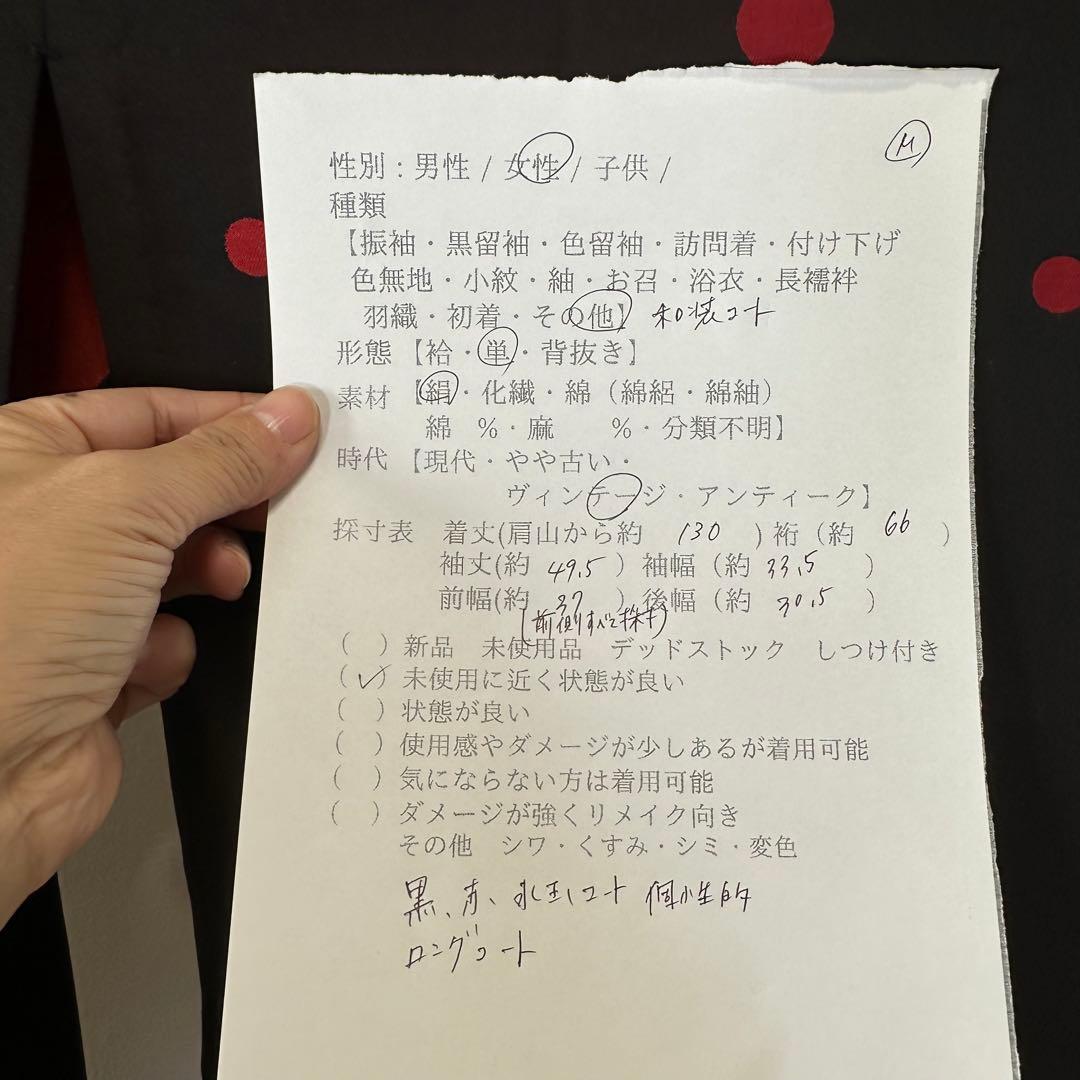 M
性別：男性 / 女性 / 子供 /
種類
【振袖・黒留袖・色留袖・訪問着・付け下げ
色無地・小紋・紬・お召・浴衣・長襦袢
羽織・初着・その他】 和装コート
形態【袷・単・背抜き】
素材【絹・化繊・綿（綿絽・綿紬）
綿 %・麻 %・分類不明】
時代【現代・やや古い・
ヴィンテージ・アンティーク】
採寸表 着丈(肩山から約 130 ) 裄（約 66 ）
袖丈(約 49.5 ）袖幅（約 33.5 ）
前幅(約 37 ）後幅（約 30.5 ）
(前側すべて
( ) 新品 未使用品 デッドストック しつけ付き
(✓) 未使用に近く状態が良い
( ) 状態が良い
( ) 使用感やダメージが少しあるが着用可能
( ) 気にならない方は着用可能
( ) ダメージが強くリメイク向き
その他 シワ・くすみ・シミ・変色
黒、赤、水玉、コート 個性的
ロングコート